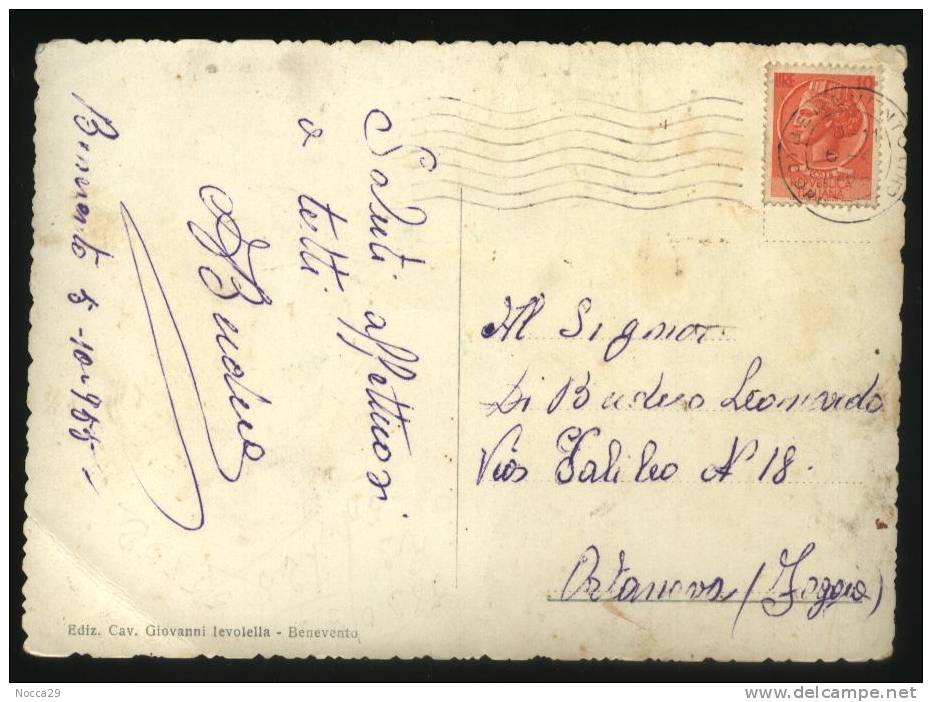 Benevento 5-10-955-
Saluti affettuosi
a tutti
Al Signor
Di Leonardo
Via Galileo N 18.
Ortanova (Foggia)
Ediz. Cav. Giovanni Ievolella - Benevento
LIRE 10
POSTE
REPVBBLICA
ITALIANA
Nocca29
www.delcampe.net